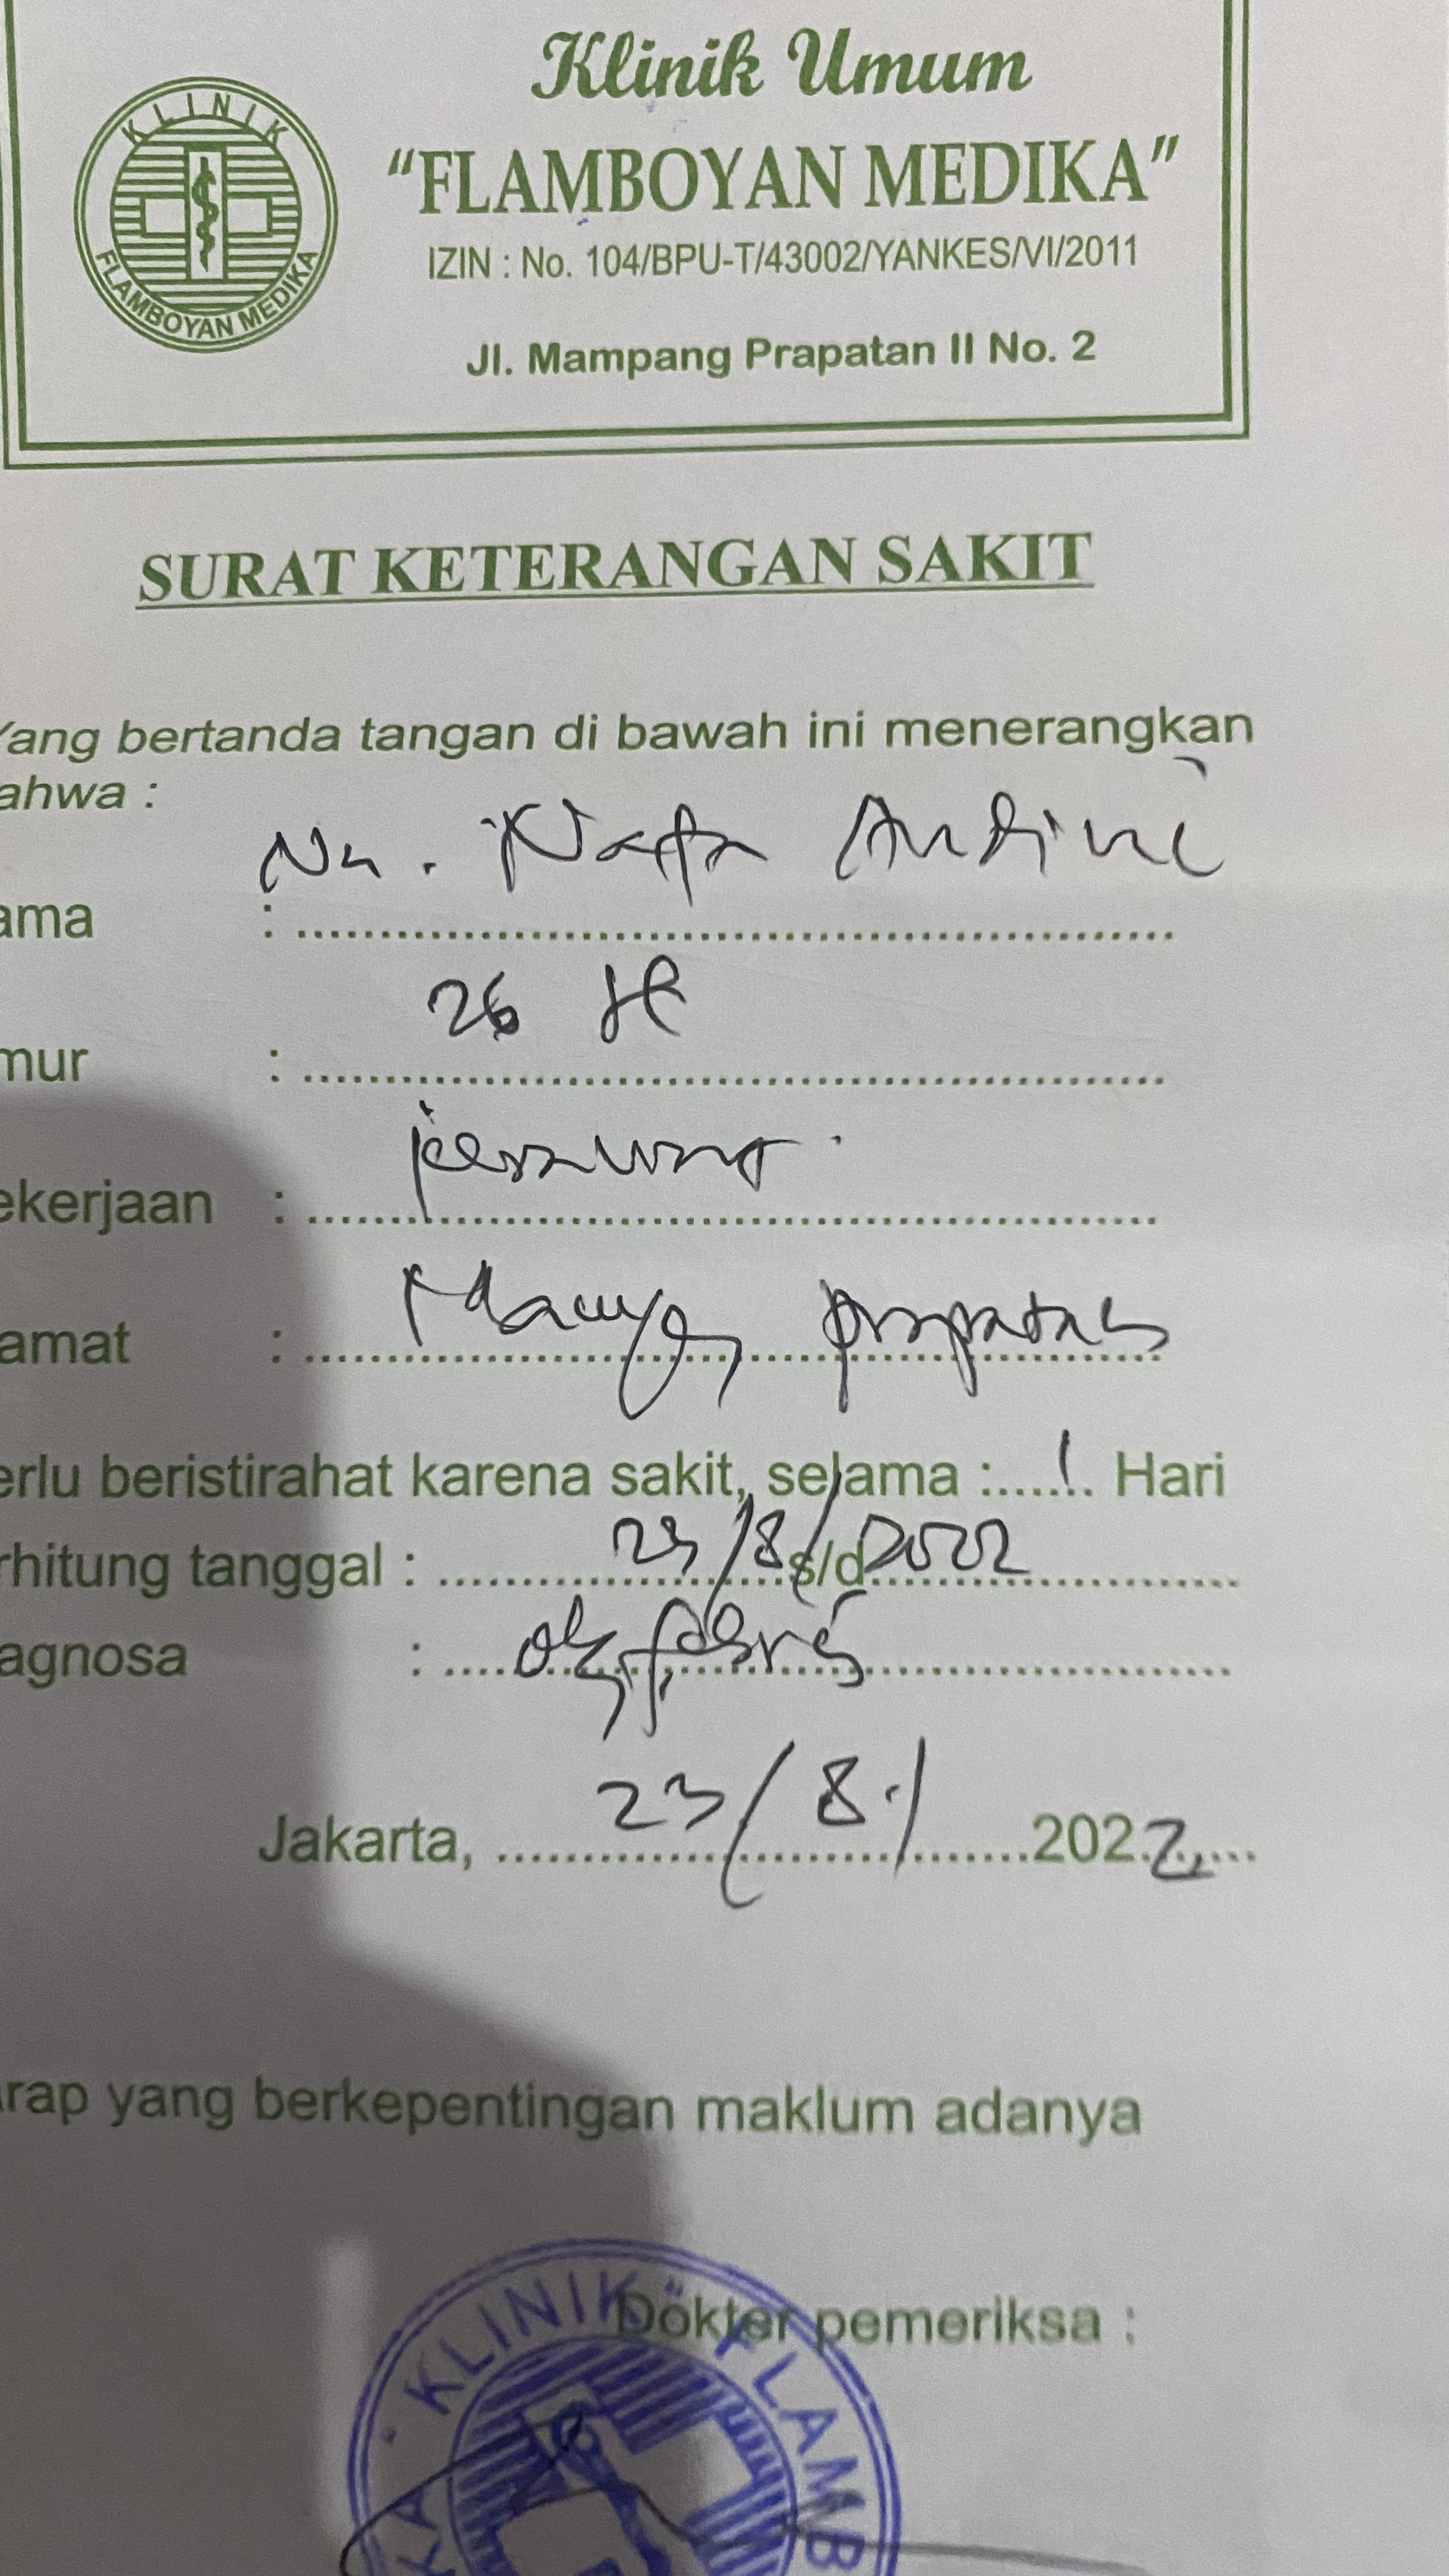 Klinik Umum
KLINIK FLAMBOYAN MEDIKA
“FLAMBOYAN MEDIKA”
IZIN : No. 104/BPU-T/43002/YANKES/VI/2011
Jl. Mampang Prapatan II No. 2
SURAT KETERANGAN SAKIT
Yang bertanda tangan di bawah ini menerangkan
ahwa :
ama : Nn. Nafa Andini
mur : 26
ekerjaan :
amat : Mampang prapatan
erlu beristirahat karena sakit, selama : 1 Hari
rhitung tanggal : 23/8/ s/d 2022
agnosa : febris
Jakarta, 23/8/ 2022
arap yang berkepentingan maklum adanya
Dokter pemeriksa :
KLINIK "FLAMB
KA